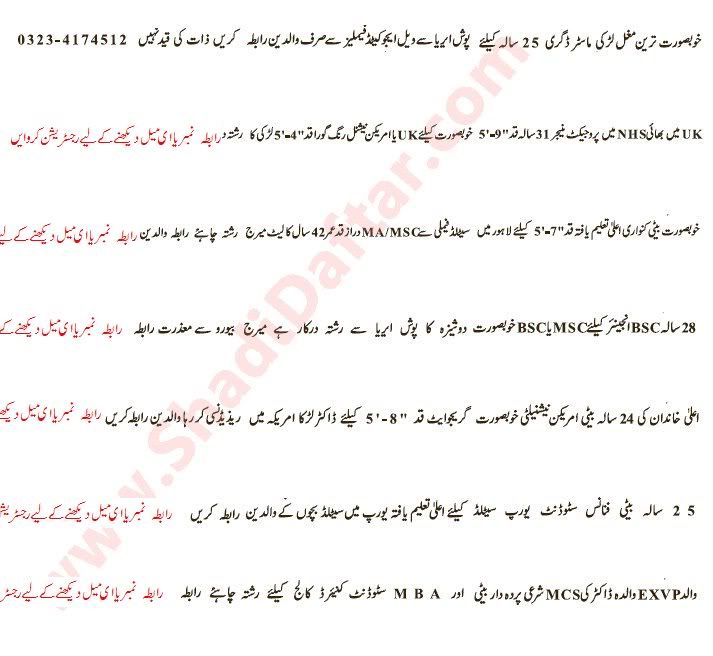 خوبصورت ترین مغل لڑکی ماسٹر ڈگری 25 سالہ کیلئے پوش ایریا سے ویل ایجوکیٹڈ فیملیز سے صرف والدین رابطہ کریں ذات کی قید نہیں 0323-4174512
UK میں بھائی NHS میں پروجیکٹ منیجر 31 سالہ قد "9-'5 خوبصورت کیلئے UK یا امریکن نیشنل رنگ گورا قد "4-'5 لڑکی کا رشتہ د رابطہ نمبر یا ای میل دیکھنے کے لیے رجسٹریشن کروایں
خوبصورت بیٹی کنواری اعلیٰ تعلیم یافتہ قد "7-'5 کیلئے لاہور میں سیٹلڈ فیملی سے MA/MSC دراز قد عمر 42 سال کا لیٹ میرج رشتہ چاہئے رابطہ والدین رابطہ نمبر یا ای میل دیکھنے کے لیے
28 سالہ BSC انجینئر کیلئے MSC یا BSC خوبصورت دوشیزہ کا پوش ایریا سے رشتہ درکار ہے میرج بیورو سے معذرت رابطہ رابطہ نمبر یا ای میل دیکھنے کے
اعلیٰ خاندان کی 24 سالہ بیٹی امریکن نیشنیلٹی خوبصورت گریجوایٹ قد "8-'5 کیلئے ڈاکٹر لڑکا امریکہ میں ریذیڈنسی کر رہا والدین رابطہ کریں رابطہ نمبر یا ای میل دیکھنے
25 سالہ بیٹی فنانس سٹوڈنٹ یورپ سیٹلڈ کیلئے اعلیٰ تعلیم یافتہ یورپ میں سیٹلڈ بچوں کے والدین رابطہ کریں رابطہ نمبر یا ای میل دیکھنے کے لیے رجسٹریشن
والد EXVP والدہ ڈاکٹر کی MCS شرعی پردہ دار بیٹی اور MBA سٹوڈنٹ کنیئرڈ کالج کیلئے رشتہ چاہئے رابطہ رابطہ نمبر یا ای میل دیکھنے کے لیے رجسٹر
www.ShadiDaftar.com